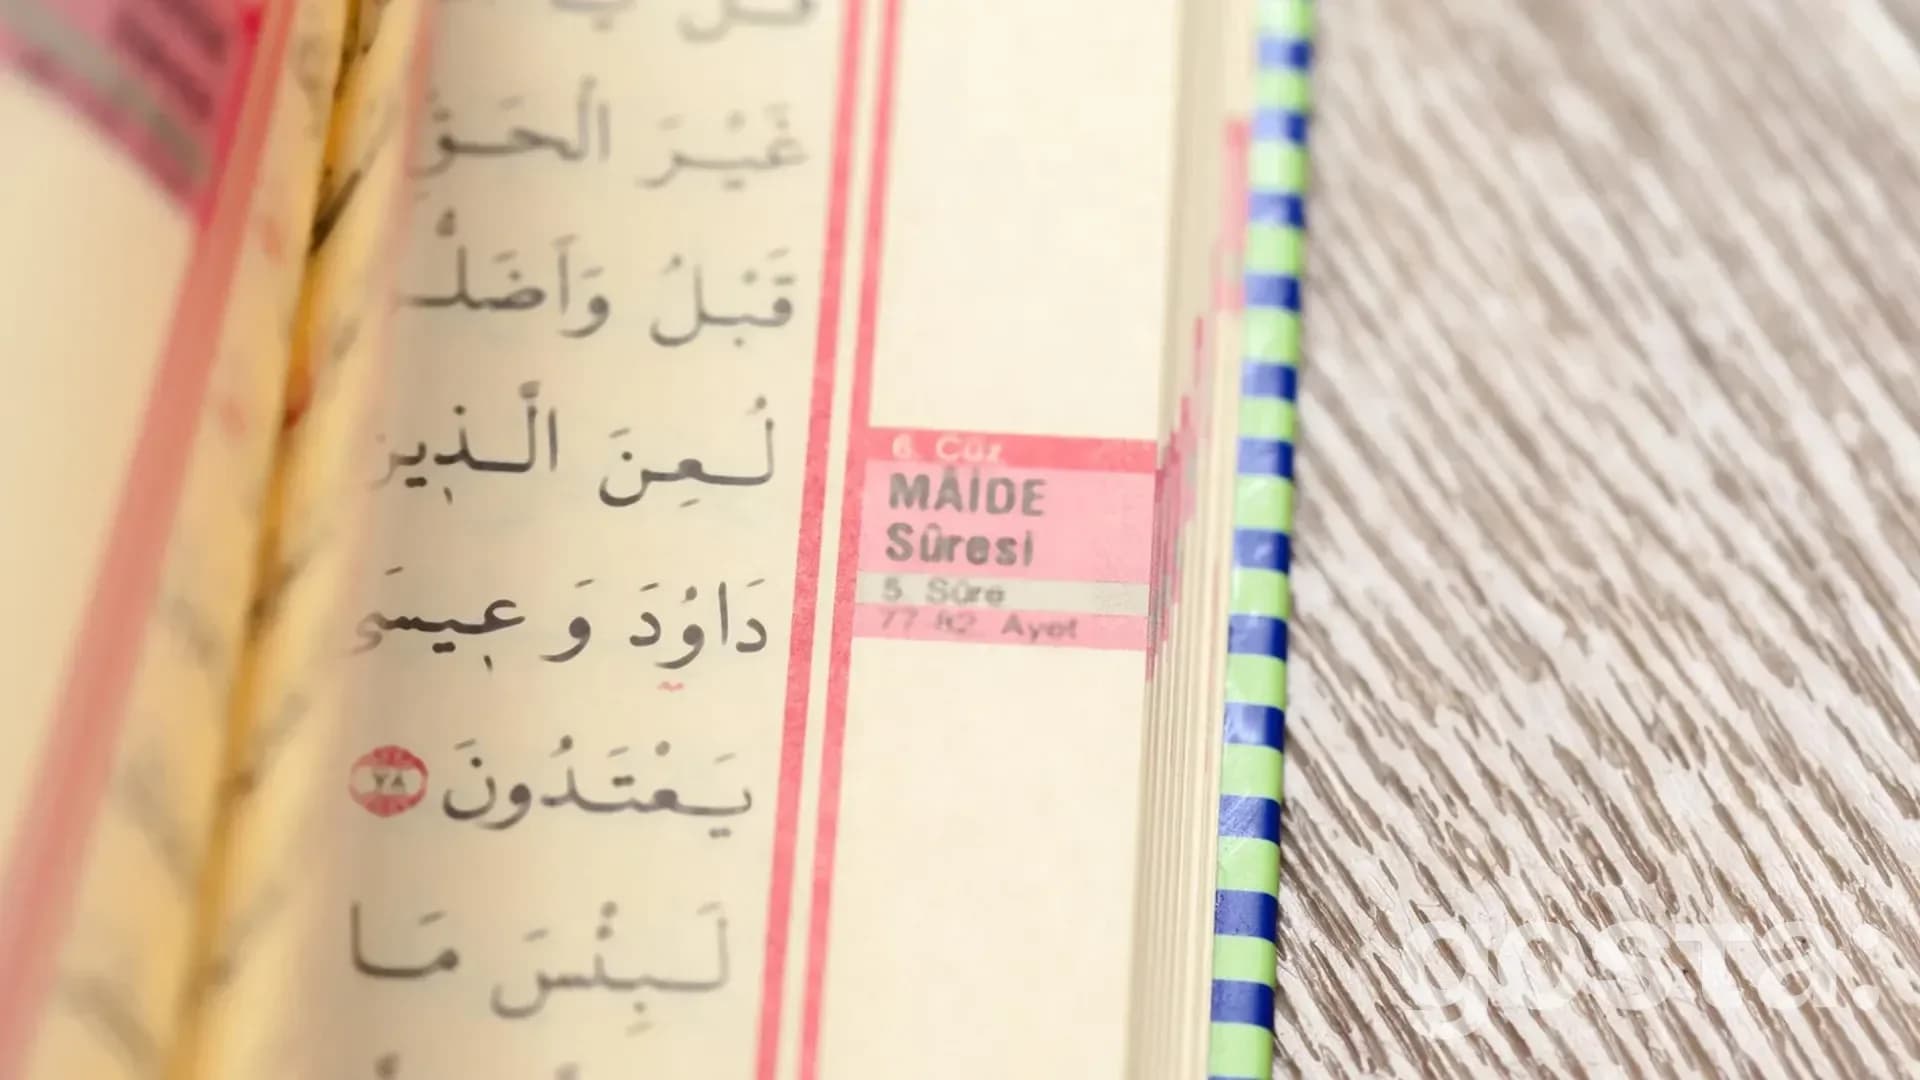 غَيْرَ الْحَقِّ
قَبْلُ وَاَضَلُّ
لُعِنَ الَّذ۪ينَ
دَاوُ۫دَ وَ ع۪يسَى
يَعْتَدُونَ ٧٨
لَبِئْسَ مَا
6. Cüz
MÂİDE
Sûresi
5. Sûre
77-82. Ayet
gosta: